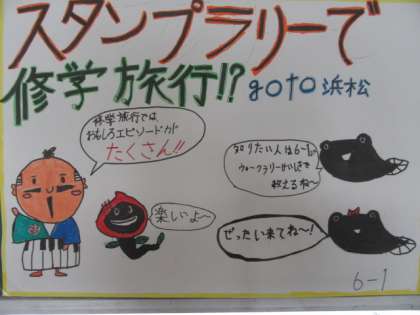 スタンプラリーで
修学旅行!? goto浜松
修学旅行では
おもしろエピソードが
たくさん!!
知りたい人は6-1の
ウォークラリーかいじょうで
教えるね〜
楽しいよ〜
ぜったい来てね〜!
6-1